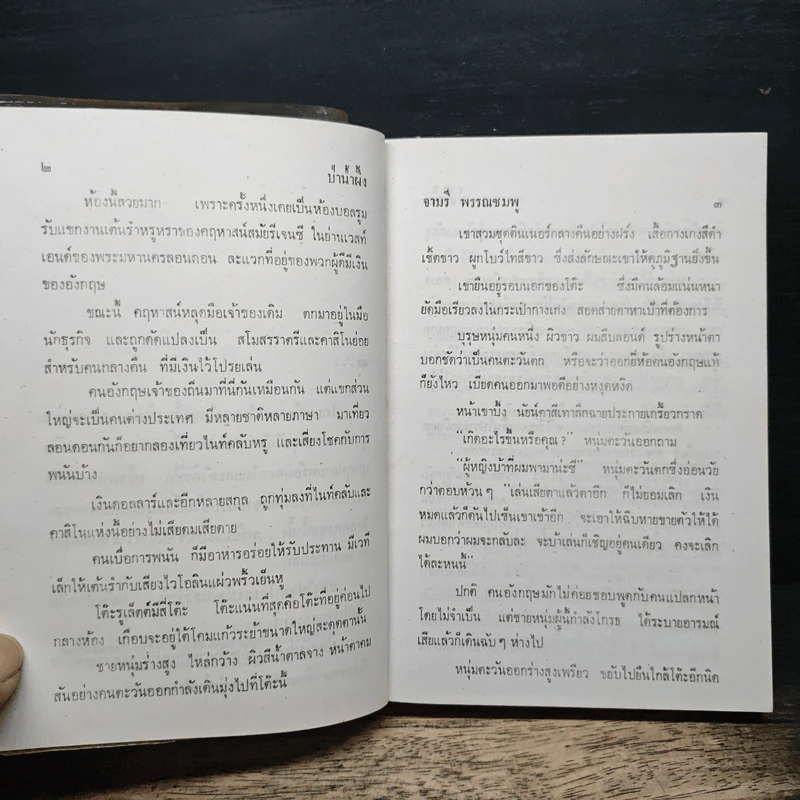 ๒
ป่าน้ำผึ้ง
ห้องนี้สวยมาก เพราะครั้งหนึ่งเคยเป็นห้องบอลรูม
รับแขกงานเต้นรำหรูหราของคฤหาสน์สมัยรีเจนซี ในย่านเวสท์
เอนด์ของพระมหานครลอนดอน ละแวกที่อยู่ของพวกผู้ดีมีเงิน
ของอังกฤษ
ขณะนี้ คฤหาสน์หลุดมือเจ้าของเดิม ตกมาอยู่ในมือ
นักธุรกิจ และถูกดัดแปลงเป็น สโมสรราตรีและคาสิโนย่อย
สำหรับคนกลางคืน ที่มีเงินไว้โปรยเล่น
คนอังกฤษเจ้าของถิ่นมาที่นี่กันเหมือนกัน แต่แขกส่วน
ใหญ่จะเป็นคนต่างประเทศ มีหลายชาติหลายภาษา มาเที่ยว
ลอนดอนกันก็อยากลองเที่ยวไนท์คลับหรู และเสี่ยงโชคกับการ
พนันบ้าง
เงินดอลลาร์และอีกหลายสกุล ถูกทุ่มลงที่ไนท์คลับและ
คาสิโนแห่งนี้อย่างไม่เสียดมเสียดาย
คนเบื่อการพนัน ก็มีอาหารอร่อยให้รับประทาน มีเวที
เล็กให้เต้นรำกับเสียงไวโอลินแผ่วพริ้วเย็นหู
โต๊ะรูเล็ตต์มีสี่โต๊ะ โต๊ะแน่นที่สุดคือโต๊ะที่อยู่ค่อนไป
กลางห้อง เกือบจะอยู่ใต้โคมแก้วระย้าขนาดใหญ่สะดุดตานั้น
ชายหนุ่มร่างสูง ไหล่กว้าง ผิวสีน้ำตาลจาง หน้าตาคม
สันอย่างคนตะวันออกกำลังเดินมุ่งไปที่โต๊ะนี้
จามรี พรรณชมพู
๓
เขาสวมชุดดินเนอร์กลางคืนอย่างฝรั่ง เสื้อกางเกงสีดำ
เชิ้ตขาว ผูกโบว์ไทสีขาว ซึ่งส่งลักษณะเขาให้ดูภูมิฐานยิ่งขึ้น
เขายืนอยู่รอบนอกของโต๊ะ ซึ่งมีคนล้อมแน่นหนา
ยัดมือเรียวลงในกระเป๋ากางเกง สอดส่ายตาหาเป้าที่ต้องการ
บุรุษหนุ่มคนหนึ่ง ผิวขาว ผมสีบลอนด์ รูปร่างหน้าตา
บอกชัดว่าเป็นคนตะวันตก หรือจะว่าออกยี่ห้อคนอังกฤษแท้
ก็ยังไหว เบียดคนออกมาพอดีอย่างหงุดหงิด
หน้าเขาบึ้ง นัยน์ตาสีเทาลึกฉายประกายเกรี้ยวกราด
“เกิดอะไรขึ้นหรือคุณ?” หนุ่มตะวันออกถาม
“ผู้หญิงบ้าที่ผมพามาน่ะซี” หนุ่มตะวันตกซึ่งอ่อนวัย
กว่าตอบห้วนๆ “เล่นเสียตาแล้วตาอีก ก็ไม่ยอมเลิก เงิน
หมดแล้วก็ดันไปเซ็นเขาเข้าอีก จะเอาให้ฉิบหายขายตัวให้ได้
ผมบอกว่าผมจะกลับละ จะบ้าเล่นก็เชิญอยู่คนเดียว คงจะเลิก
ได้ละหนนี้”
ปกติ คนอังกฤษมักไม่ค่อยชอบพูดกับคนแปลกหน้า
โดยไม่จำเป็น แต่ชายหนุ่มผู้นี้กำลังโกรธ ได้ระบายอารมณ์
เสียแล้วก็เดินฉับๆ ห่างไป
หนุ่มตะวันออกร่างสูงเพรียว ขยับไปยืนใกล้โต๊ะอีกนิด